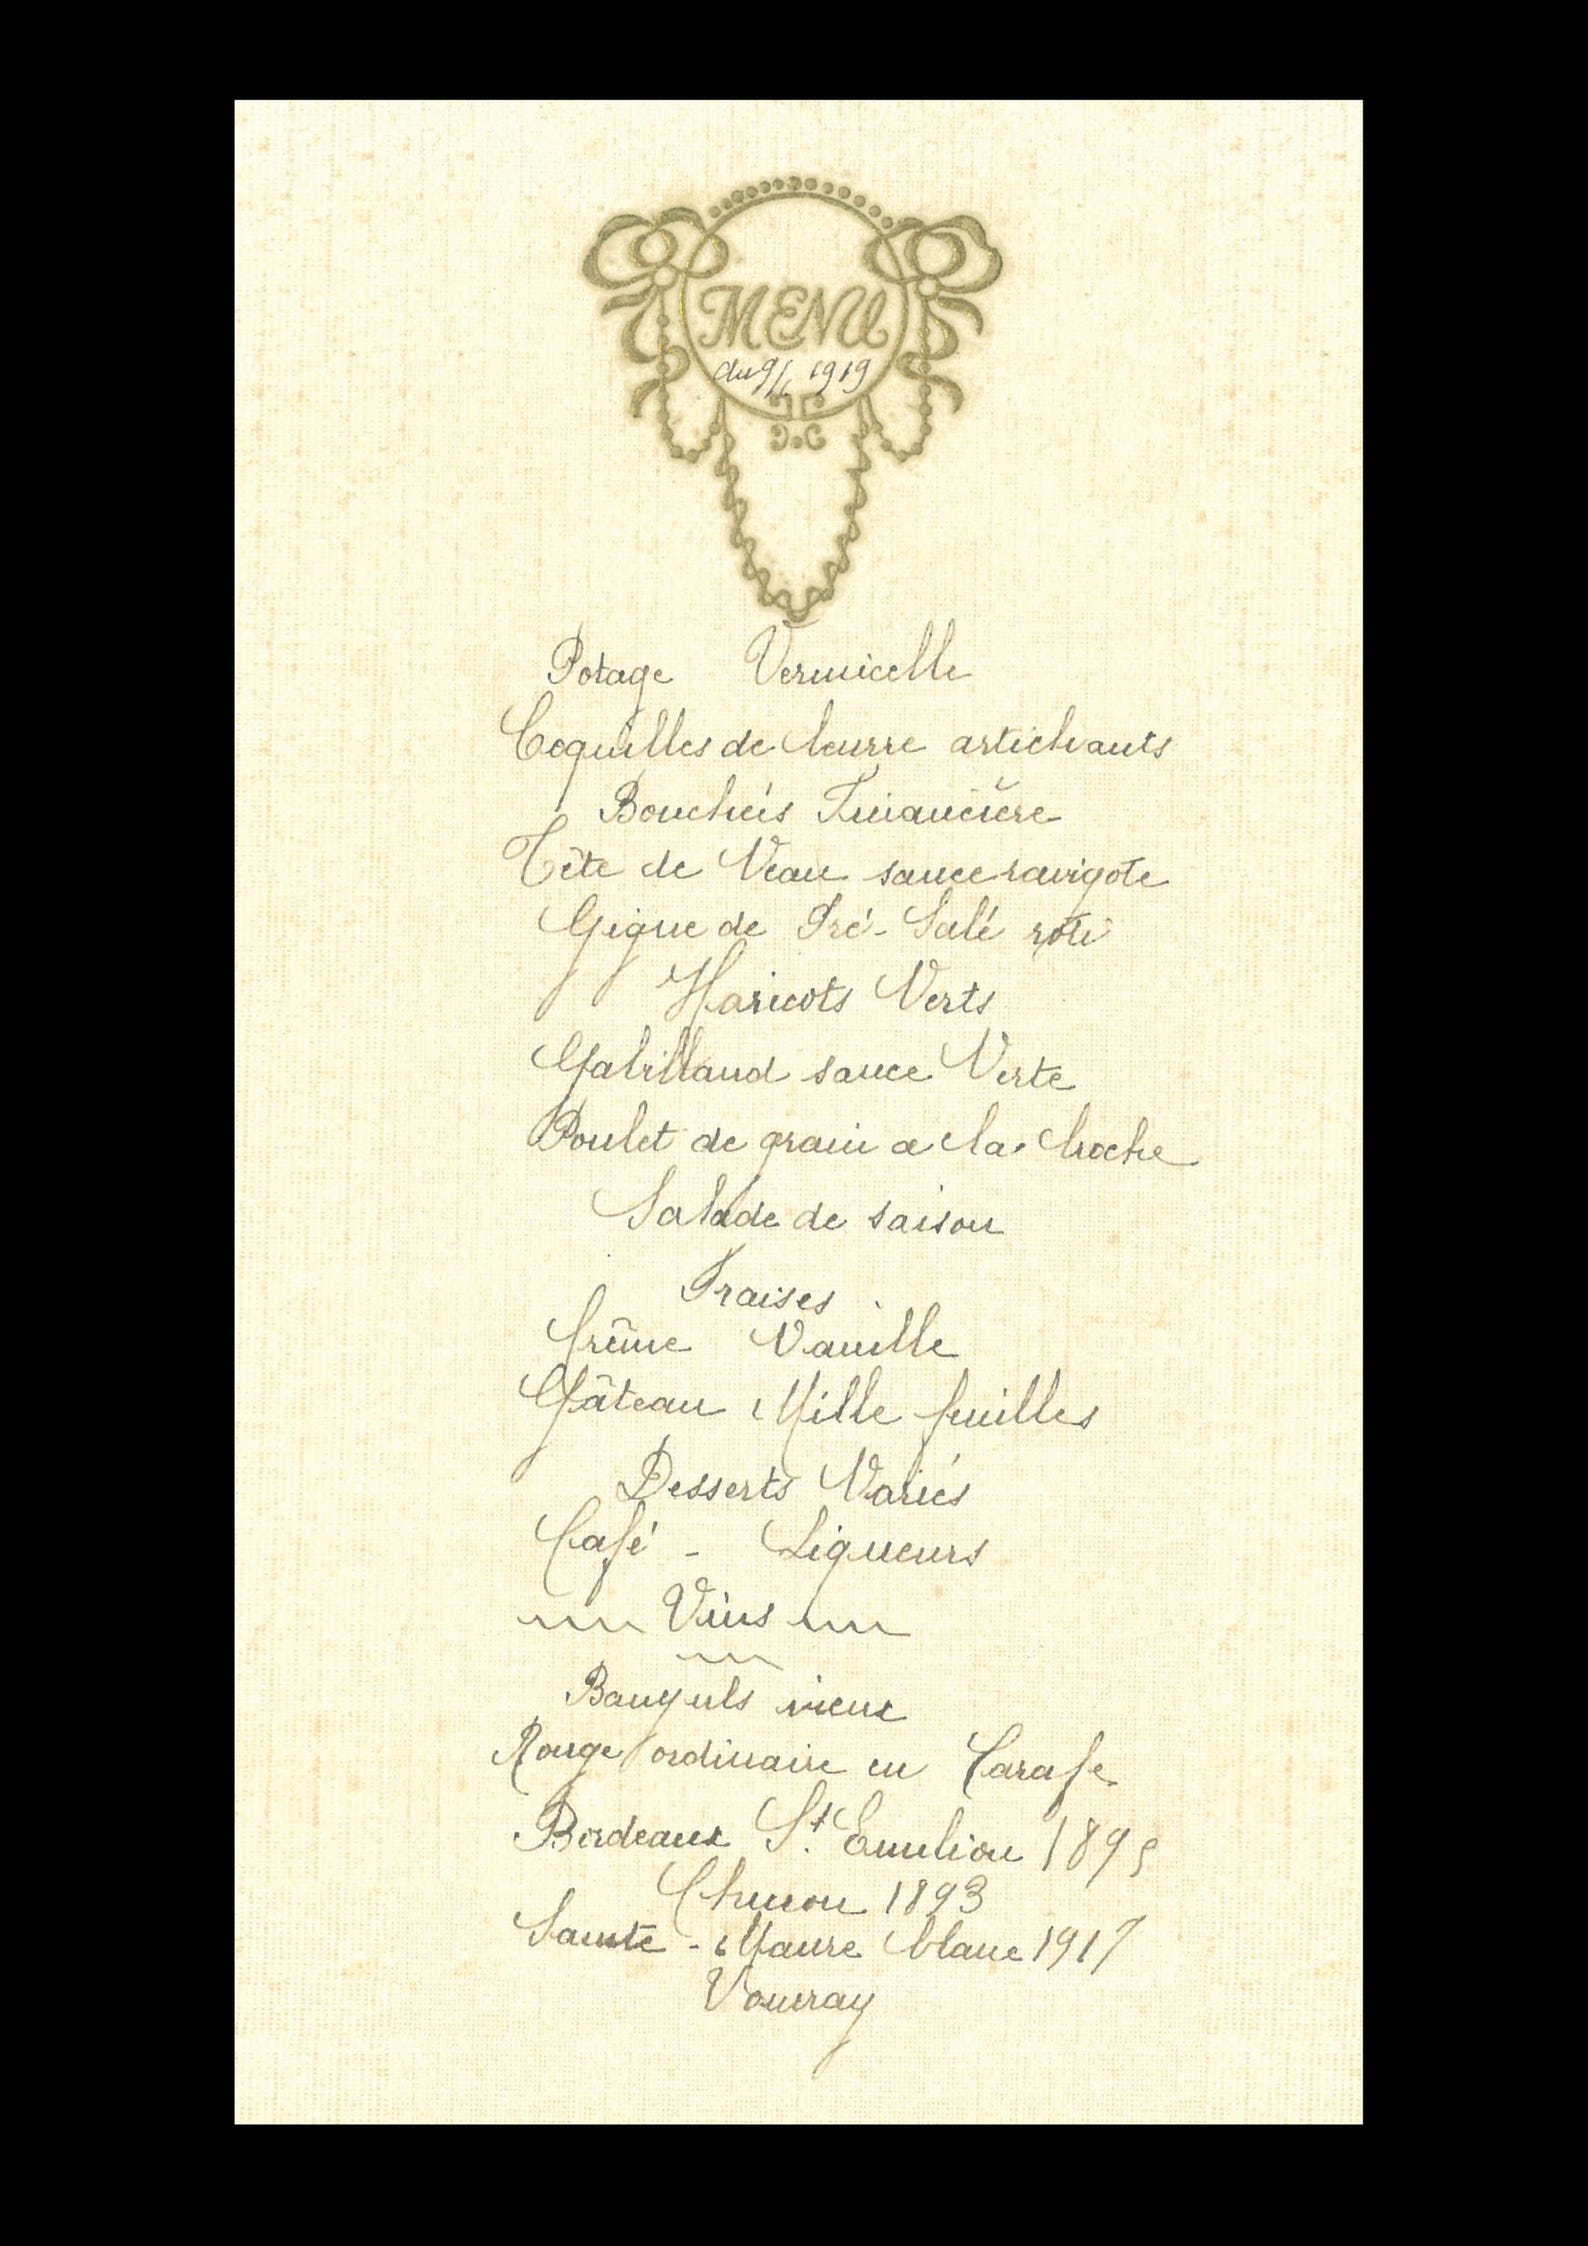 MENU
du 9/6 1919
Potage Vermicelle
Coquilles de beurre artichauts
Bouchées Financière
Tête de Veau sauce ravigote
Gigue de Pré-Salé roti
Haricots Verts
Gabillaud sauce Verte
Poulet de grain a la broche
Salade de saison
Fraises
Crême Vanille
Gâteau Mille feuilles
Desserts Variés
Café - Liqueurs
Vins
Banyuls vieux
Rouge ordinaire en Carafe
Bordeaux St. Emilion 1895
Chinon 1893
Sainte-Maure blanc 1917
Vouvray